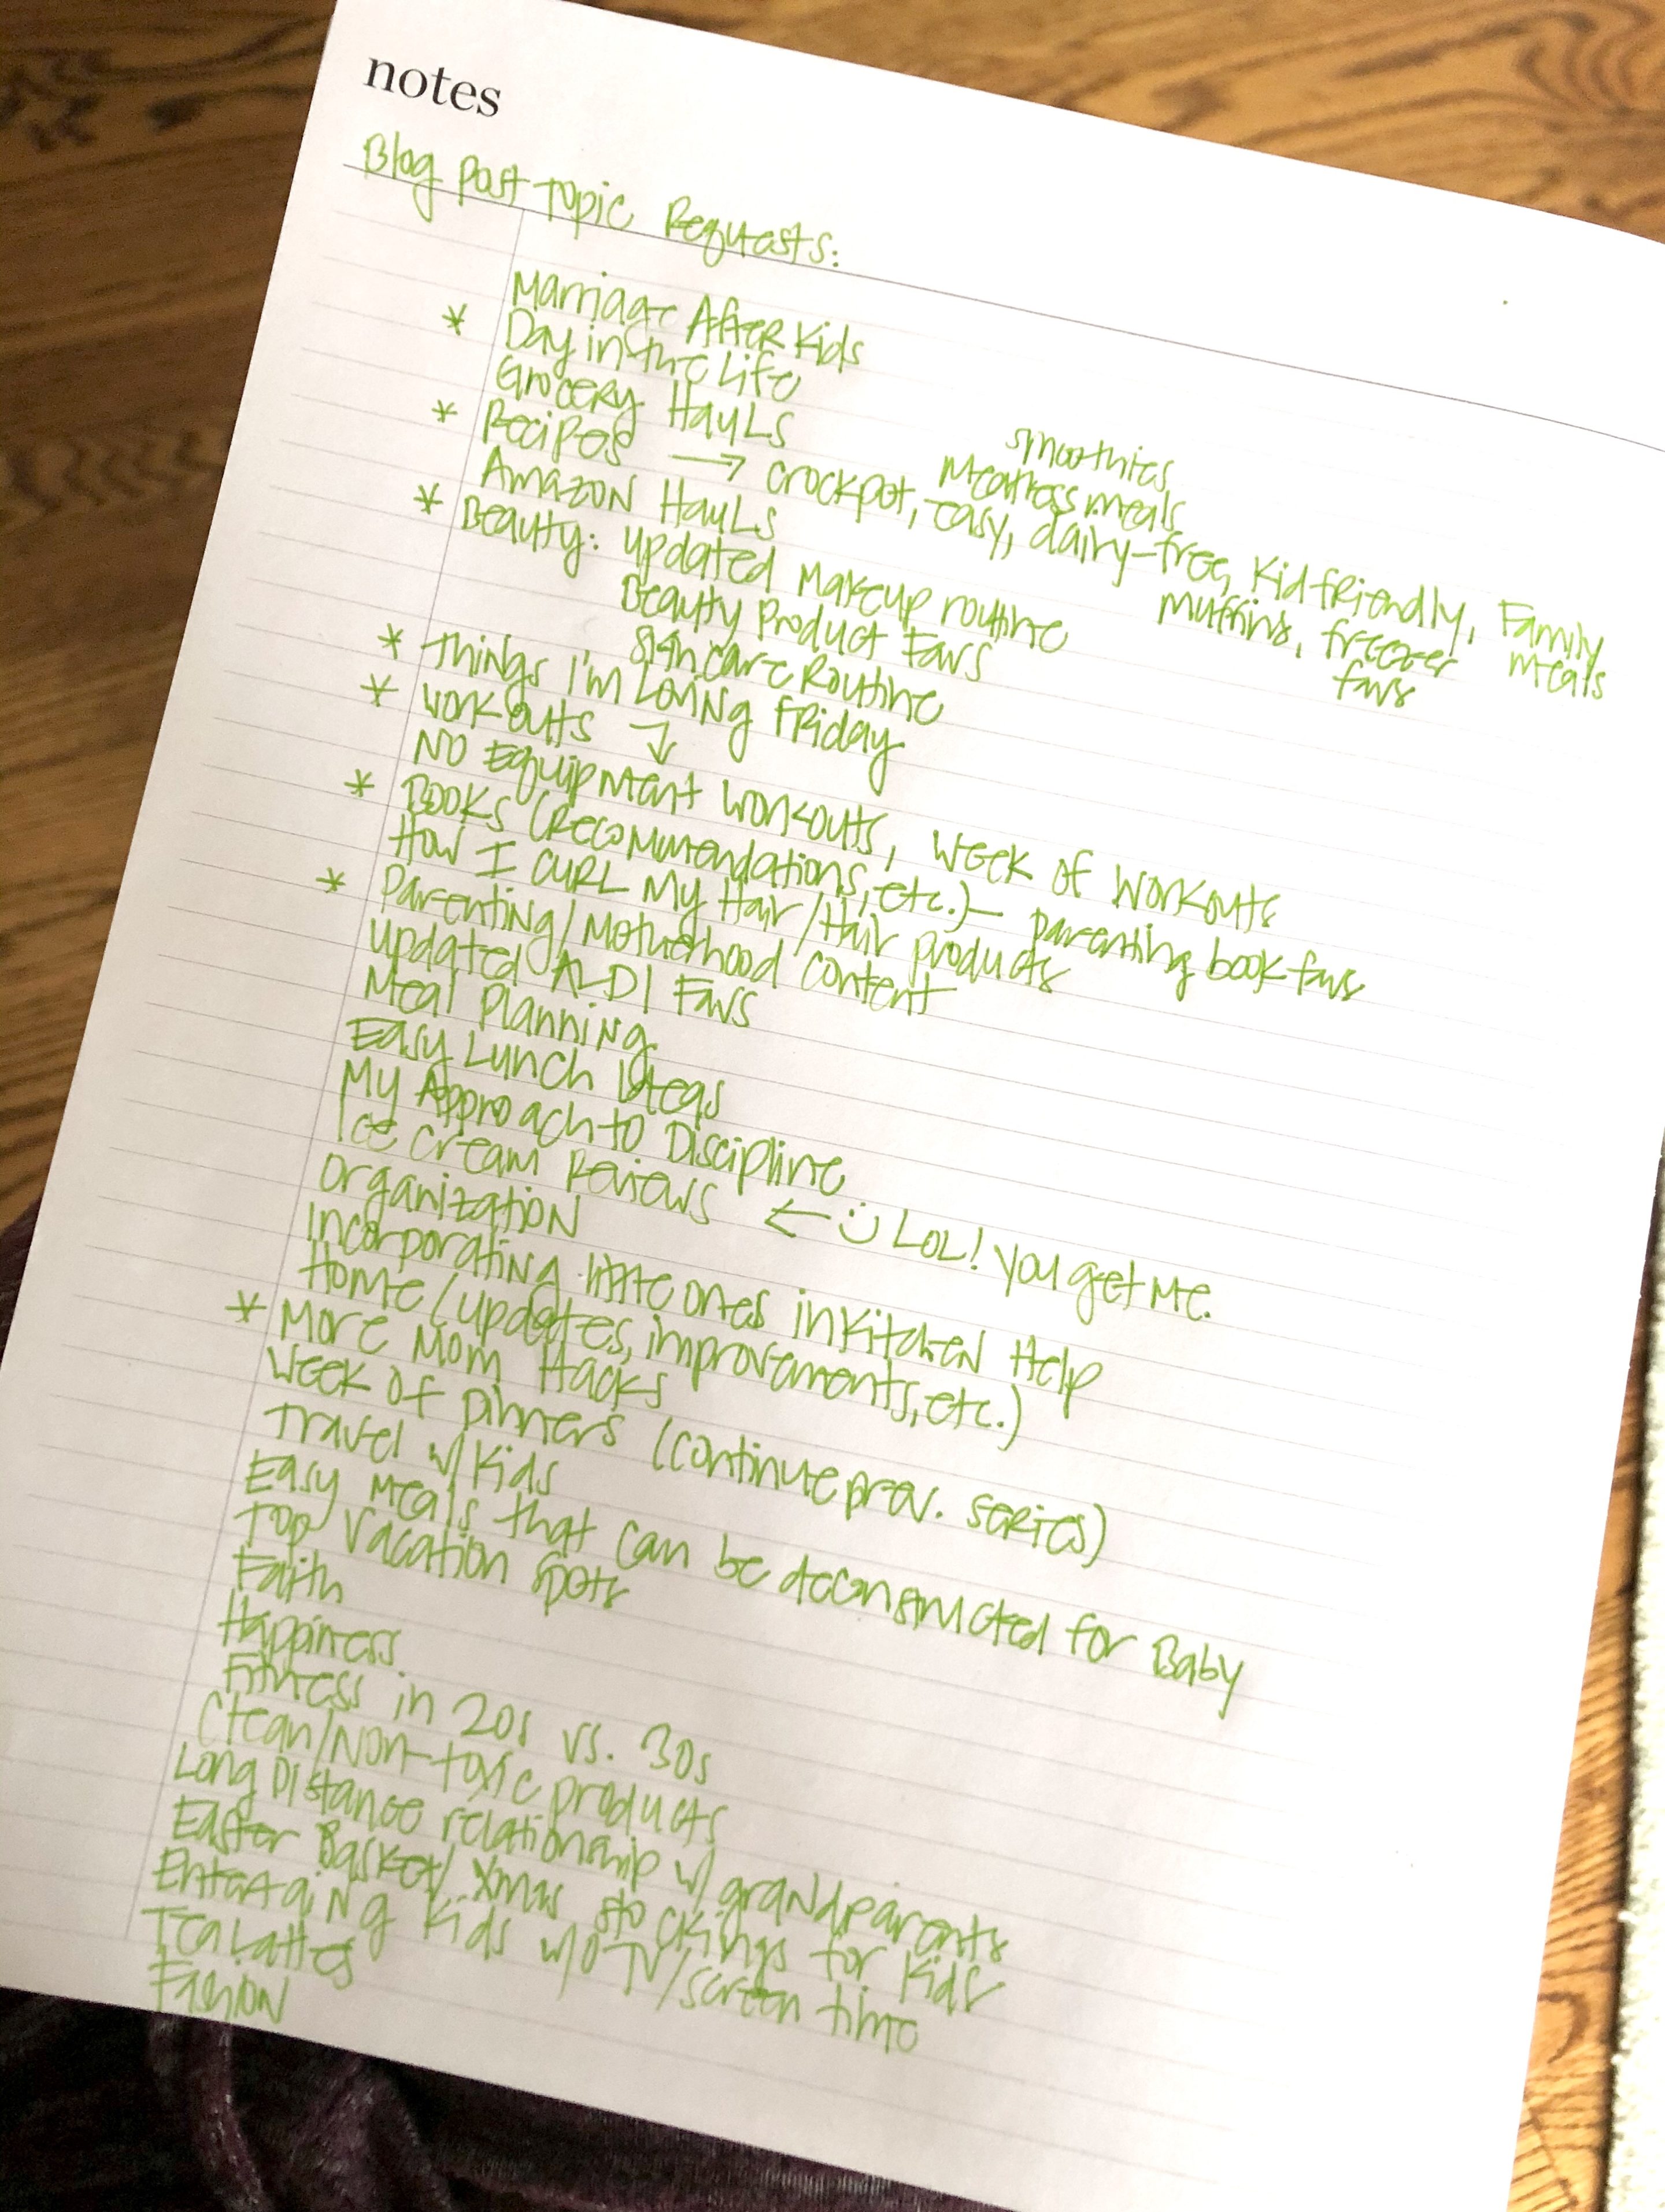 notes
Blog Post Topic Requests:
Marriage After Kids
* Day in the Life
Grocery Hauls
* Recipes → crockpot, easy, dairy-free, Kid friendly, Family meals
smoothies
meatless meals
muffins, freezer favs
Amazon Hauls
* Beauty: updated makeup routine
Beauty Product Favs
Skin care Routine
* Things I'm Loving Friday
* Workouts ↓
No Equipment Workouts, Week of Workouts
* Books (Recommendations, etc.) — parenting book favs
How I Curl My Hair/Hair products
* Parenting/Motherhood content
updated ALDI Favs
Meal Planning
Easy Lunch Ideas
My Approach to Discipline
Ice Cream Reviews ← :) LOL! You get me.
Organization
Incorporating little ones in Kitchen Help
Home (updates, improvements, etc.)
* More Mom Hacks
Week of Dinners (continue prev. series)
Travel w/ Kids
Easy Meals that can be deconstructed for Baby
Top Vacation Spots
Faith
Happiness
Fitness in 20s vs. 30s
Clean/Non-toxic products
Long Distance relationship w/ grandparents
Easter Basket/Xmas stockings for Kids
Entertaining Kids w/o TV/screen time
Tea Lattes
Fashion